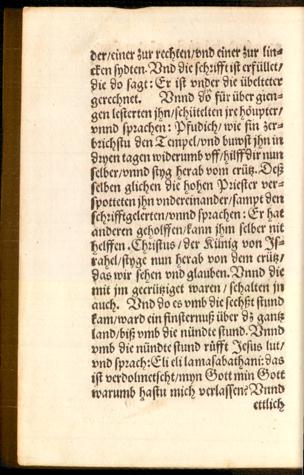 der/einer zur rechten/vnd einer zur lin-
cken sydten. Vnd die schrifft ist erfüllet/
die do sagt: Er ist vnder die übelteter
gerechnet. Vnnd dö für über gien-
gen lesterten jhn/schüttelten jre höupter/
vnnd sprachen: Pfudich/wie fin zer-
brichstu den Tempel/vnd buwst jhn in
dryen tagen widerumb vff/hilff dir nun
selber/vnnd styg herab vom crütz. Deß
selben glichen die hohen Priester ver-
spotteten jhn vndereinander/sampt den
schrifftgelerten/vnnd sprachen: Er hat
anderen geholffen/kann jhm selber nit
helffen. Christus/der Künig von Js-
rahel/styge nun herab von dem crütz/
das wir sehen vnd glauben. Vnnd die
mit jm gecrütziget waren/schalten jn
auch. Vnd do es vmb die sechßt stund
kam/ward ein finsternuß über dz gantz
land/biß vmb die nündte stund. Vnnd
vmb die nündte stund rüfft Jesus lut/
vnd sprach: Eli eli lamasabathani: das
ist verdolmetscht/myn Gott min Gott
warumb hastu mich verlassen? Vnnd
ettlich